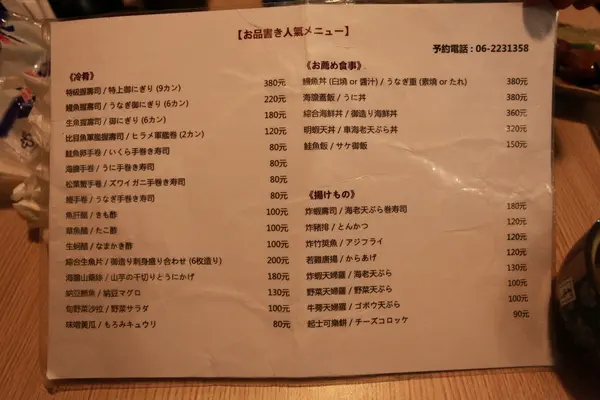 【お品書き人氣メニュー】
予約電話：06-2231358
《冷肴》
特級握壽司 / 特上御にぎり (9カン) 380元
鰻魚握壽司 / うなぎ御にぎり (6カン) 220元
生魚握壽司 / 御にぎり (6カン) 180元
比目魚軍艦握壽司 / ヒラメ軍艦巻 (2カン) 120元
鮭魚卵手卷 / いくら手巻き寿司 80元
海膽手卷 / うに手巻き寿司 80元
松葉蟹手卷 / ズワイガニ手巻き寿司 80元
鰻手卷 / うなぎ手巻き寿司 80元
魚肝醋 / きも酢 100元
章魚醋 / たこ酢 100元
生蚵醋 / なまかき酢 100元
綜合生魚片 / 御造り刺身盛り合わせ (6枚造り) 200元
海膽山藥絲 / 山芋の千切りとうにかげ 180元
納豆鮪魚 / 納豆マグロ 130元
旬野菜沙拉 / 野菜サラダ 100元
味噌黃瓜 / もろみキュウリ 80元
《お薦め食事》
鰻魚丼 (白燒 or 醬汁) / うなぎ重 (素焼 or たれ) 380元
海膽蓋飯 / うに丼 380元
綜合海鮮丼 / 御造り海鮮丼 360元
明蝦天丼 / 車海老天ぷら丼 320元
鮭魚飯 / サケ御飯 150元
《揚けもの》
炸蝦壽司 / 海老天ぷら巻寿司 180元
炸豬排 / とんかつ 120元
炸竹筴魚 / アジフライ 120元
若雞唐揚 / からあげ 120元
炸蝦天婦羅 / 海老天ぷら 130元
野菜天婦羅 / 野菜天ぷら 100元
牛旁天婦羅 / ゴボウ天ぷら 100元
起士可樂餅 / チーズコロッケ 90元